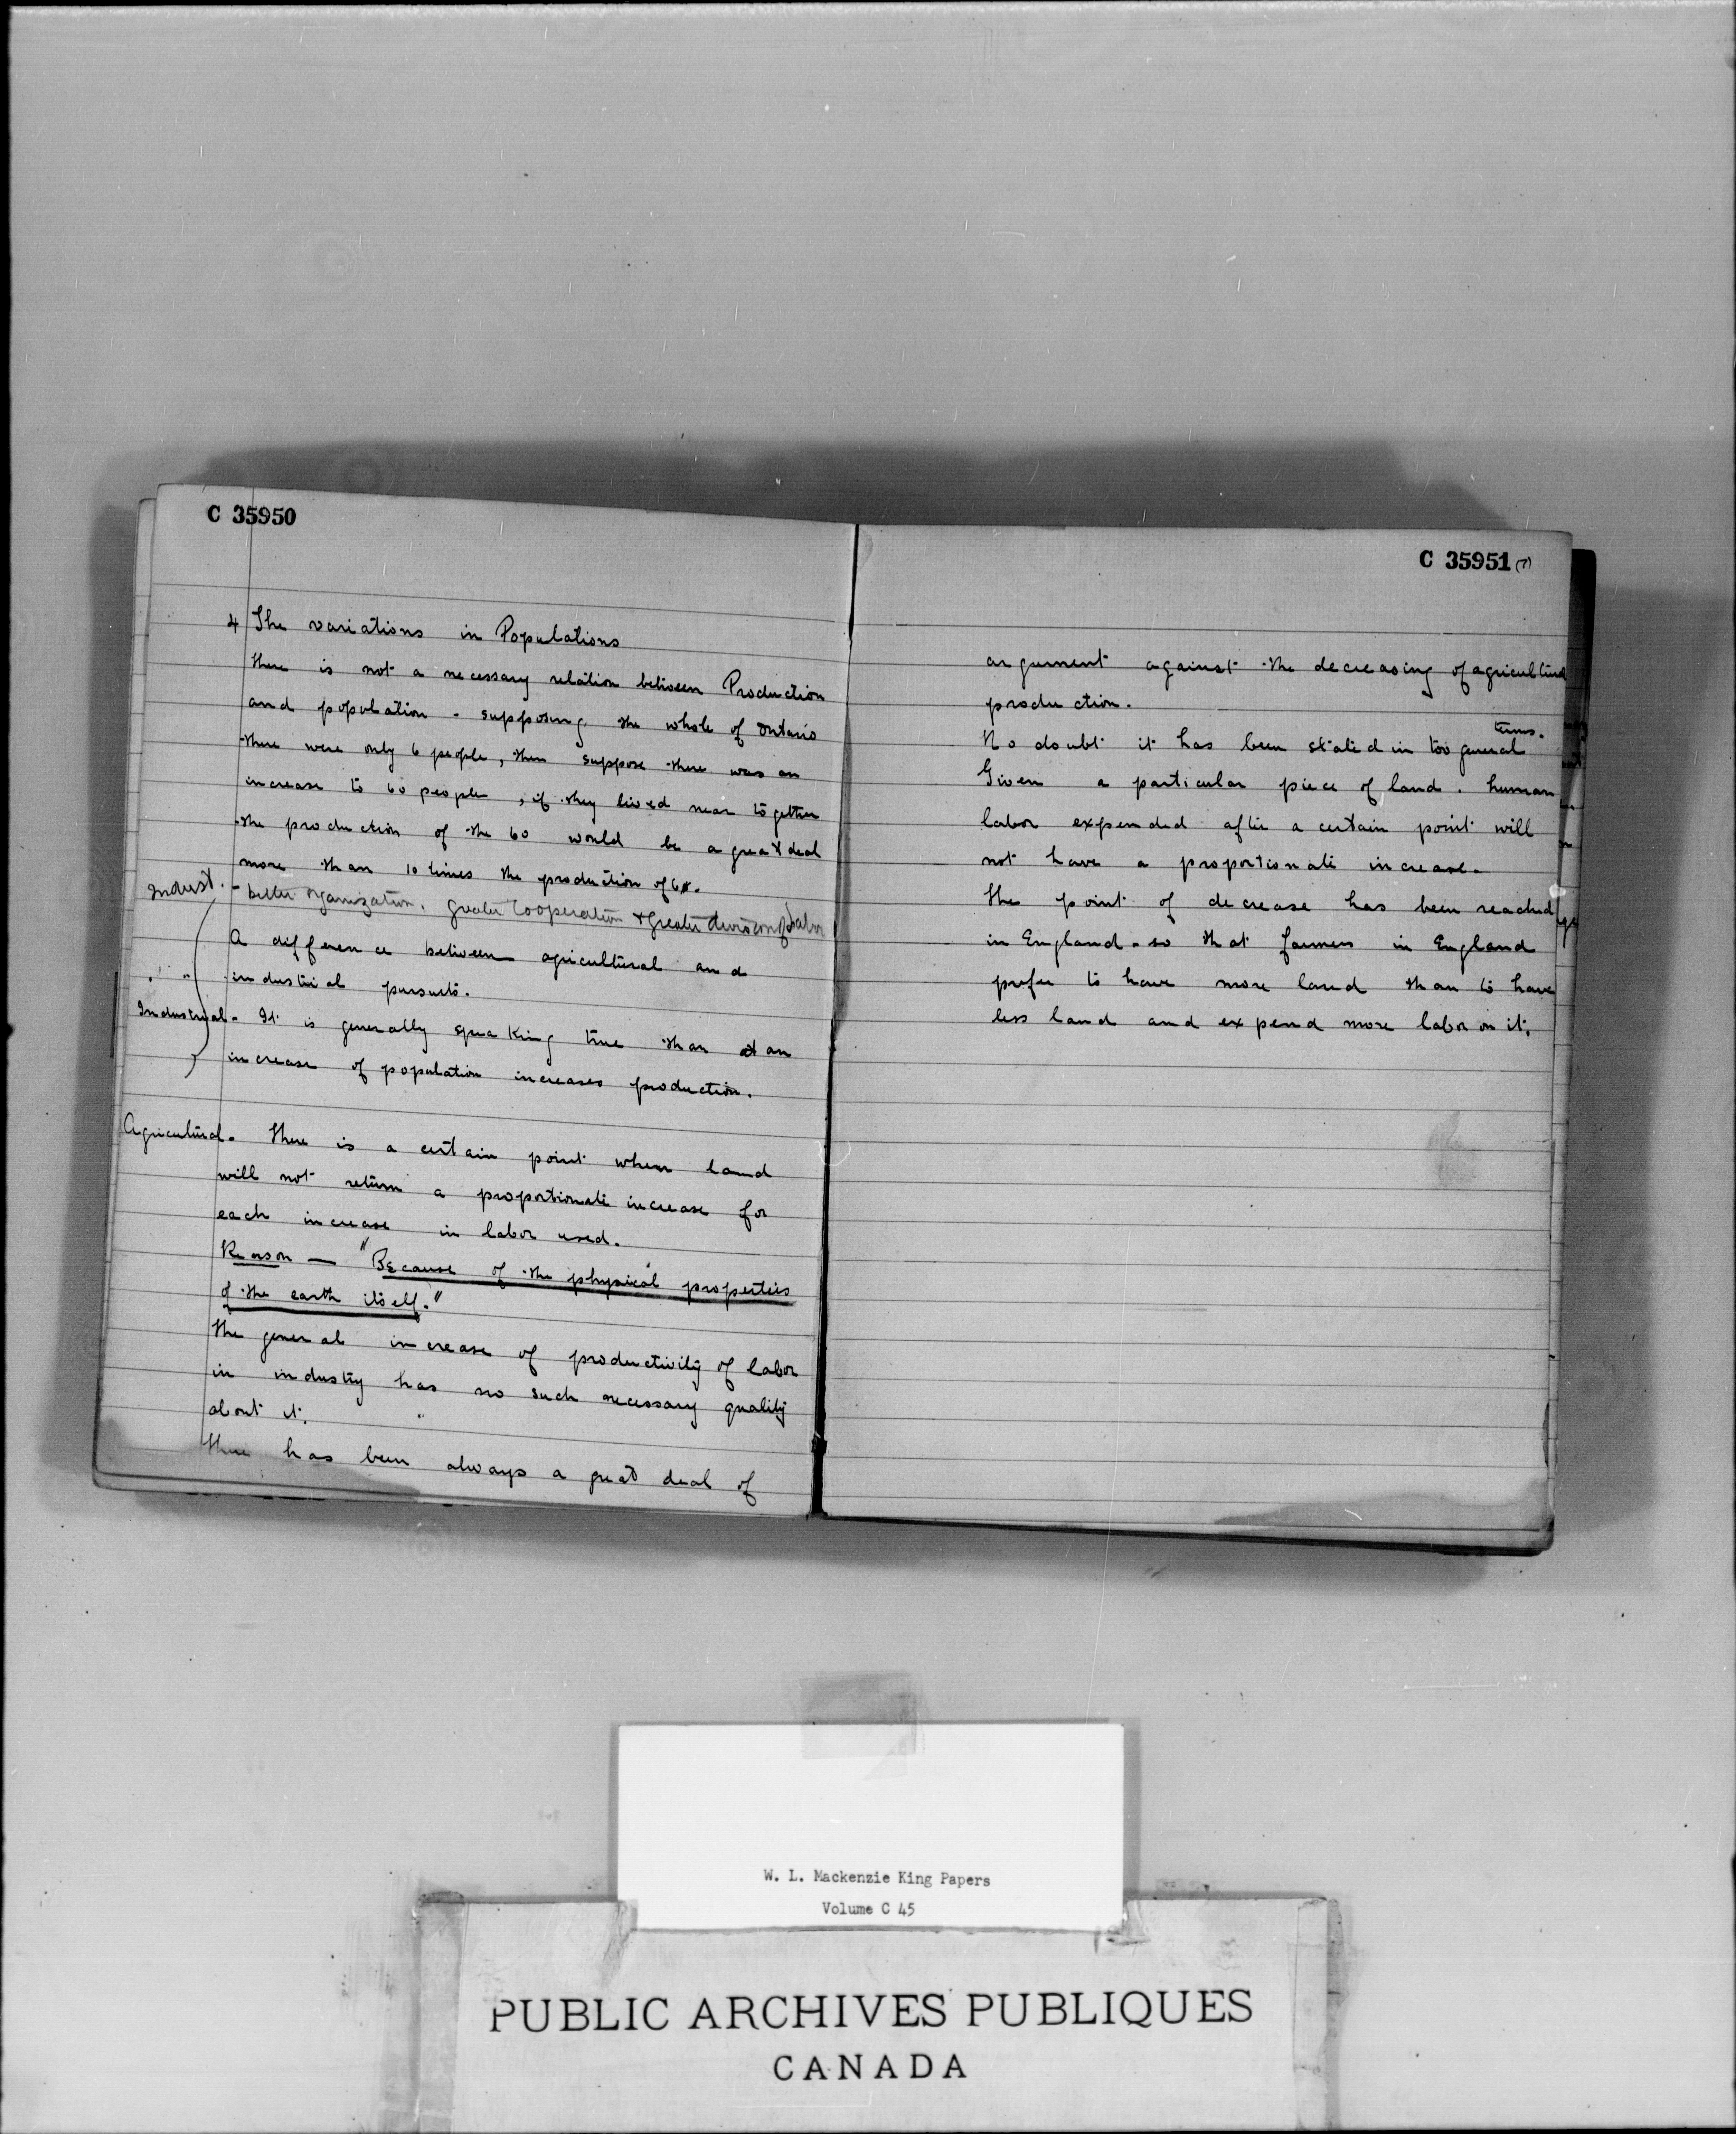 C 35950
4 The variations in Populations
There is not a necessary relation between Production
and population - supposing the whole of Ontario
there were only 6 people, then suppose there was an
increase to 60 people, if they lived near together
the production of the 60 would be a great deal
more than 10 times the production of 6.
Indust. - better organization. greater cooperation & greater division of labor
A difference between agricultural and
" " industrial pursuits.
Industrial - It is generally speaking true than at an
increase of population increases production.
Agricultural. There is a certain point when land
will not return a proportionate increase for
each increase in labor used.
Reason — "Because of the physical properties
of the earth itself."
The general increase of productivity of labor
in industry has no such necessary quality
about it. "
There has been always a great deal of
C 35951 (7)
argument against the decreasing of agricultural
production.
No doubt it has been stated in too general terms.
Given a particular piece of land. human
labor expended after a certain point will
not have a proportionate increase.
The point of decrease has been reached
in England - so that farmers in England
prefer to have more land than to have
less land and expend more labor on it.
W. L. Mackenzie King Papers
Volume C 45
PUBLIC ARCHIVES PUBLIQUES
CANADA